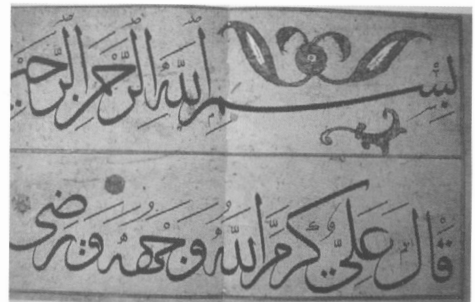 بِسْمِ اللّٰهِ الرَّحْمٰنِ الرَّحِيْ
قَالَ عَلِيٌّ كَرَّمَ اللّٰهُ وَجْهَهُ وَرَضِيَ